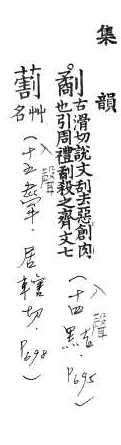 集韻
劀
古滑切說文刮去惡創肉
也引周禮劀殺之齊文七
(入聲十四黠, P695)
藒
艸
名
(入聲十五舝, 居轄切, P698)